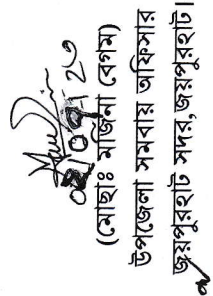 (মোছাঃ মর্জিনা বেগম)
উপজেলা সমবায় অফিসার
জয়পুরহাট সদর, জয়পুরহাট।